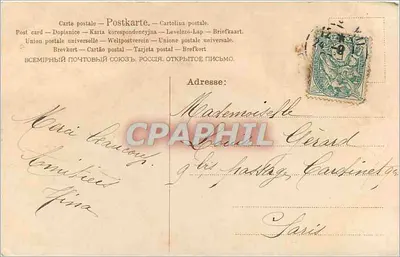 Carte postale — Postkarte. — Cartolina postale.
Post card — Dopisnice — Karta korespondencyjna — Levelezo-Lap — Briefkaart.
Union postale universelle — Weltpostverein — Unione postale universale.
Brevkort — Cartão postal — Tarjeta postal — Brefkort
ВСЕМІРНЫЙ ПОЧТОВЫЙ СОЮЗЪ. РОССІЯ. ОТКРЫТОЕ ПИСЬМО.
Adresse:
Mademoiselle
Gérard
9 bis passage Cardinet
Paris
Merci beaucoup
Amitiées
Nina
CPARPHIL